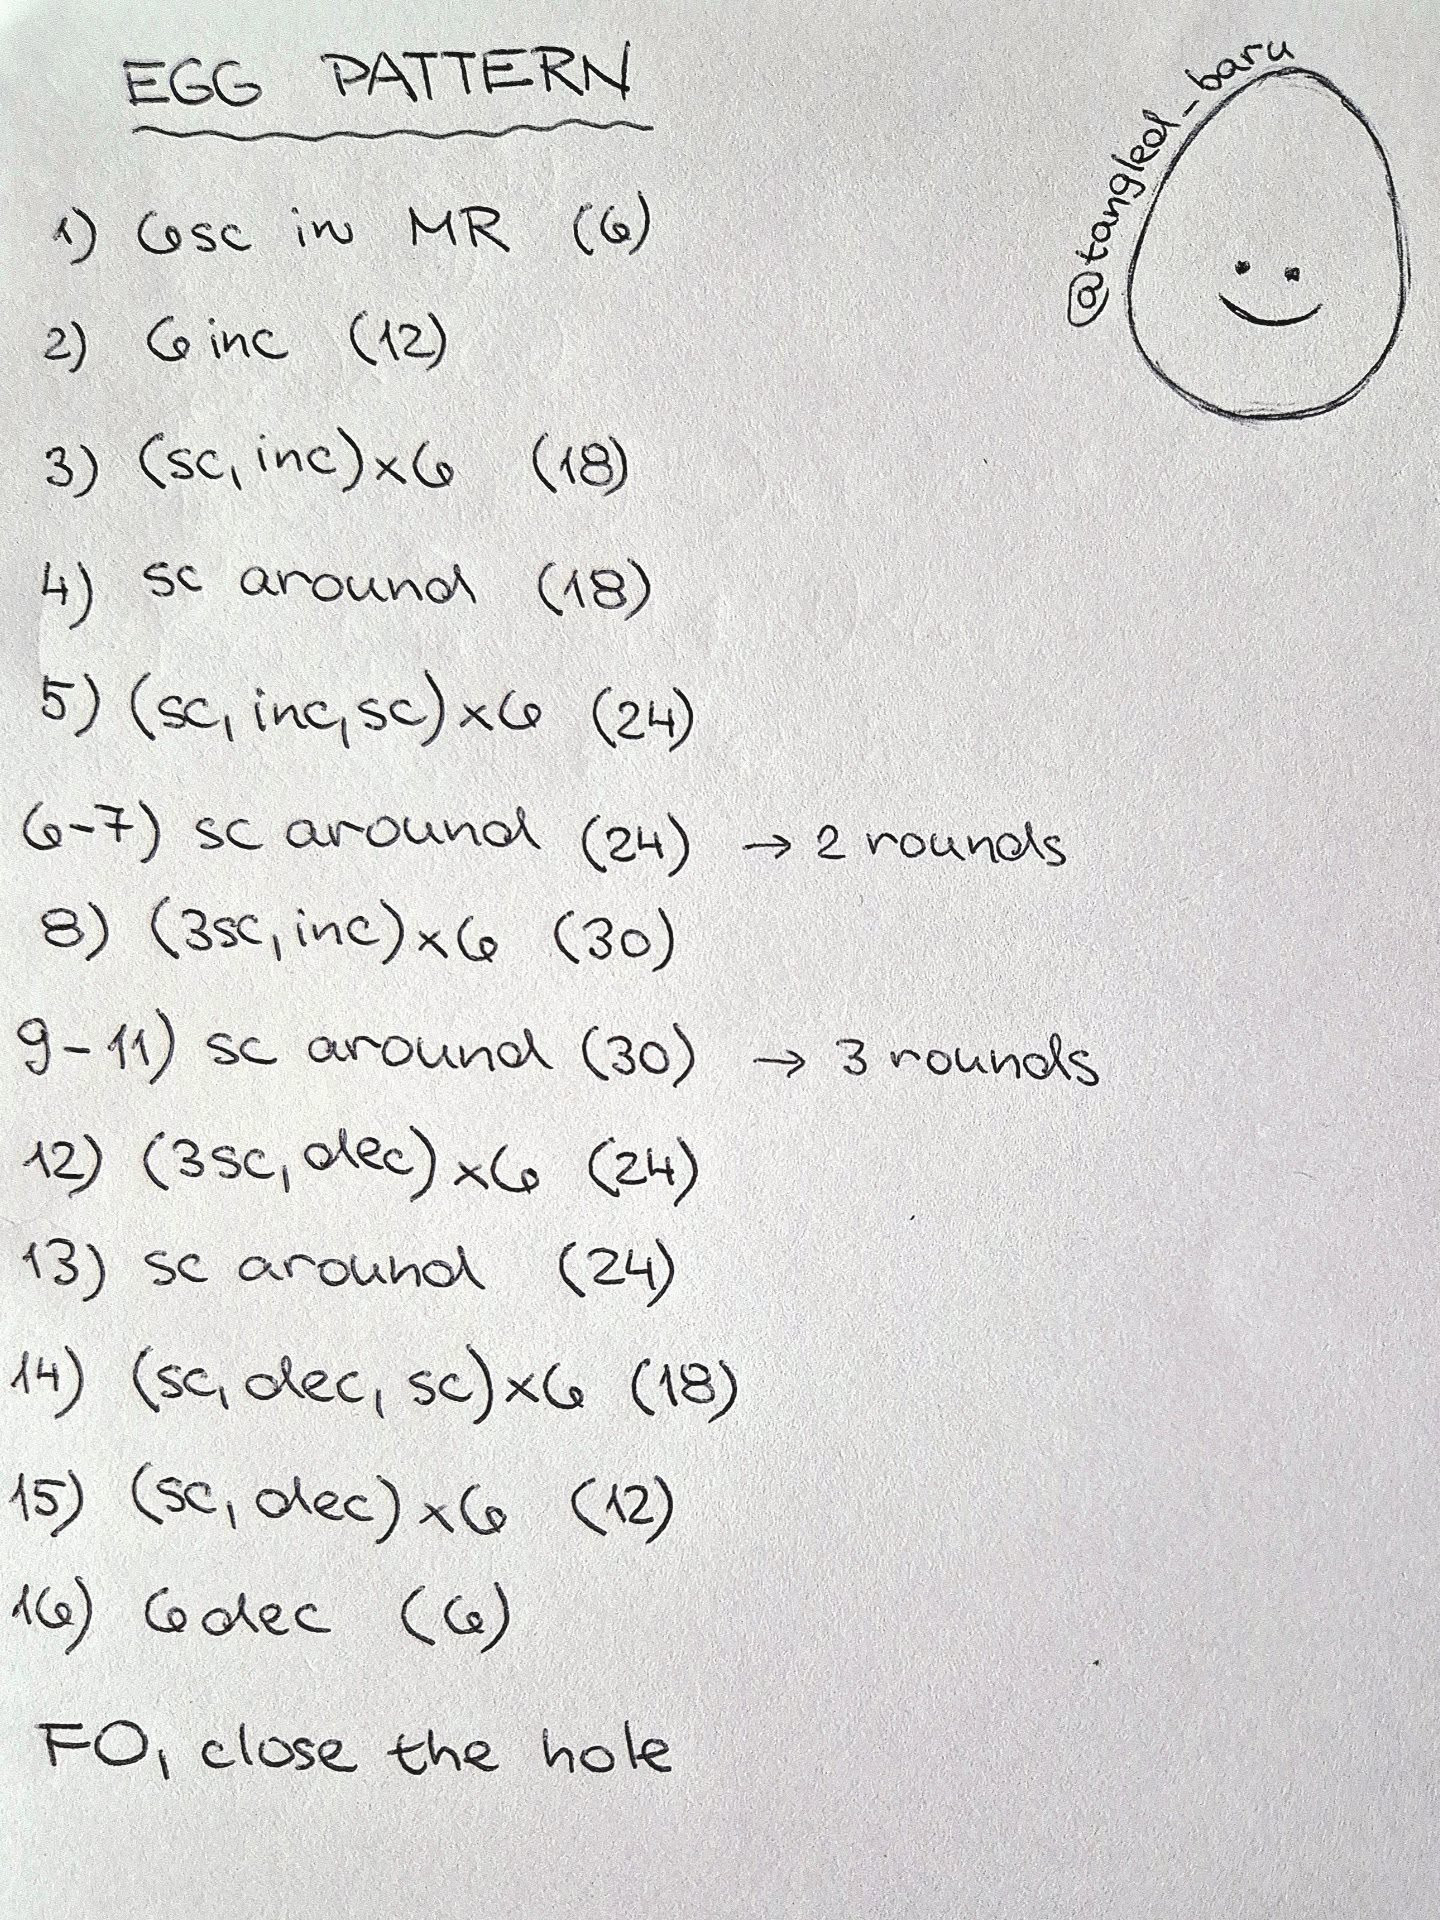 EGG PATTERN
@tangled_baru
1) 6sc in MR (6)
2) 6 inc (12)
3) (sc, inc)x6 (18)
4) sc around (18)
5) (sc, inc, sc)x6 (24)
6-7) sc around (24) → 2 rounds
8) (3sc, inc)x6 (30)
9-11) sc around (30) → 3 rounds
12) (3sc, dec)x6 (24)
13) sc around (24)
14) (sc, dec, sc)x6 (18)
15) (sc, dec)x6 (12)
16) 6dec (6)
FO, close the hole